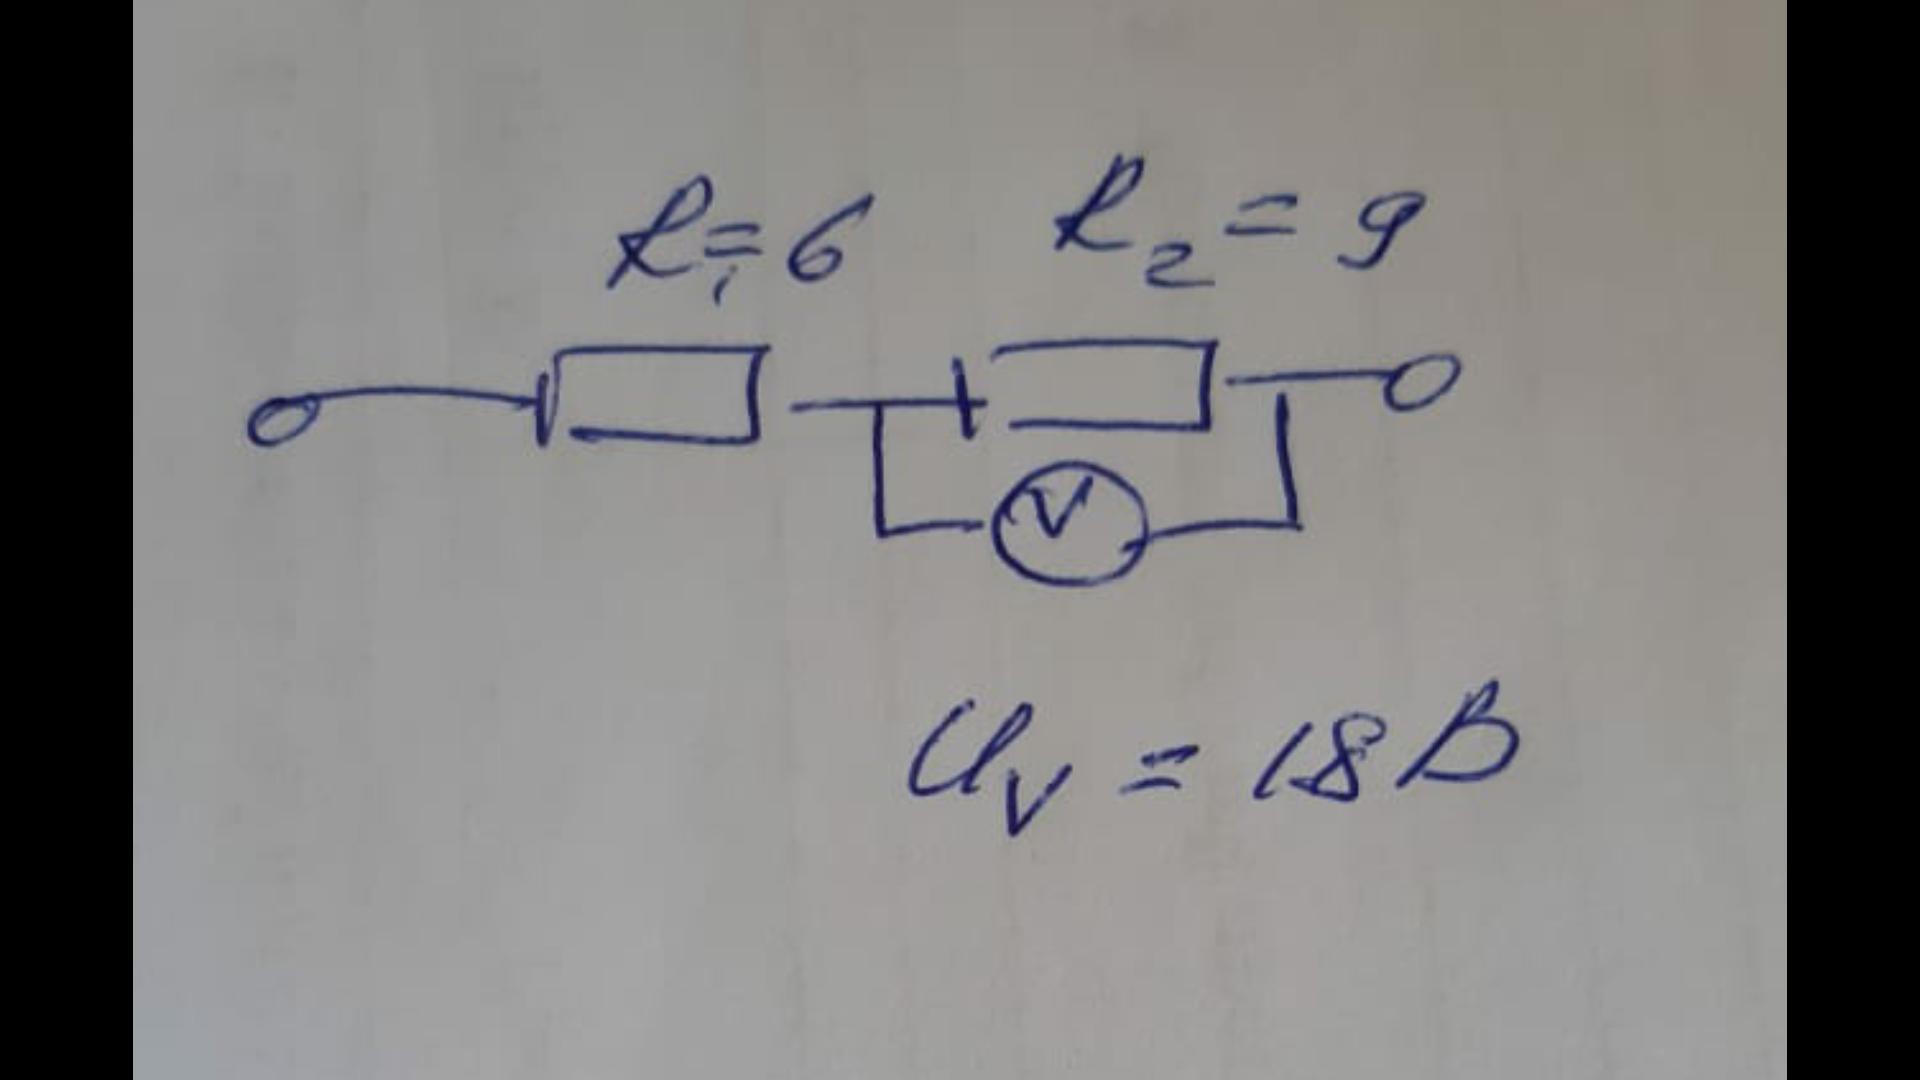 R₁=6 R₂=9
V
Uᵥ=18В